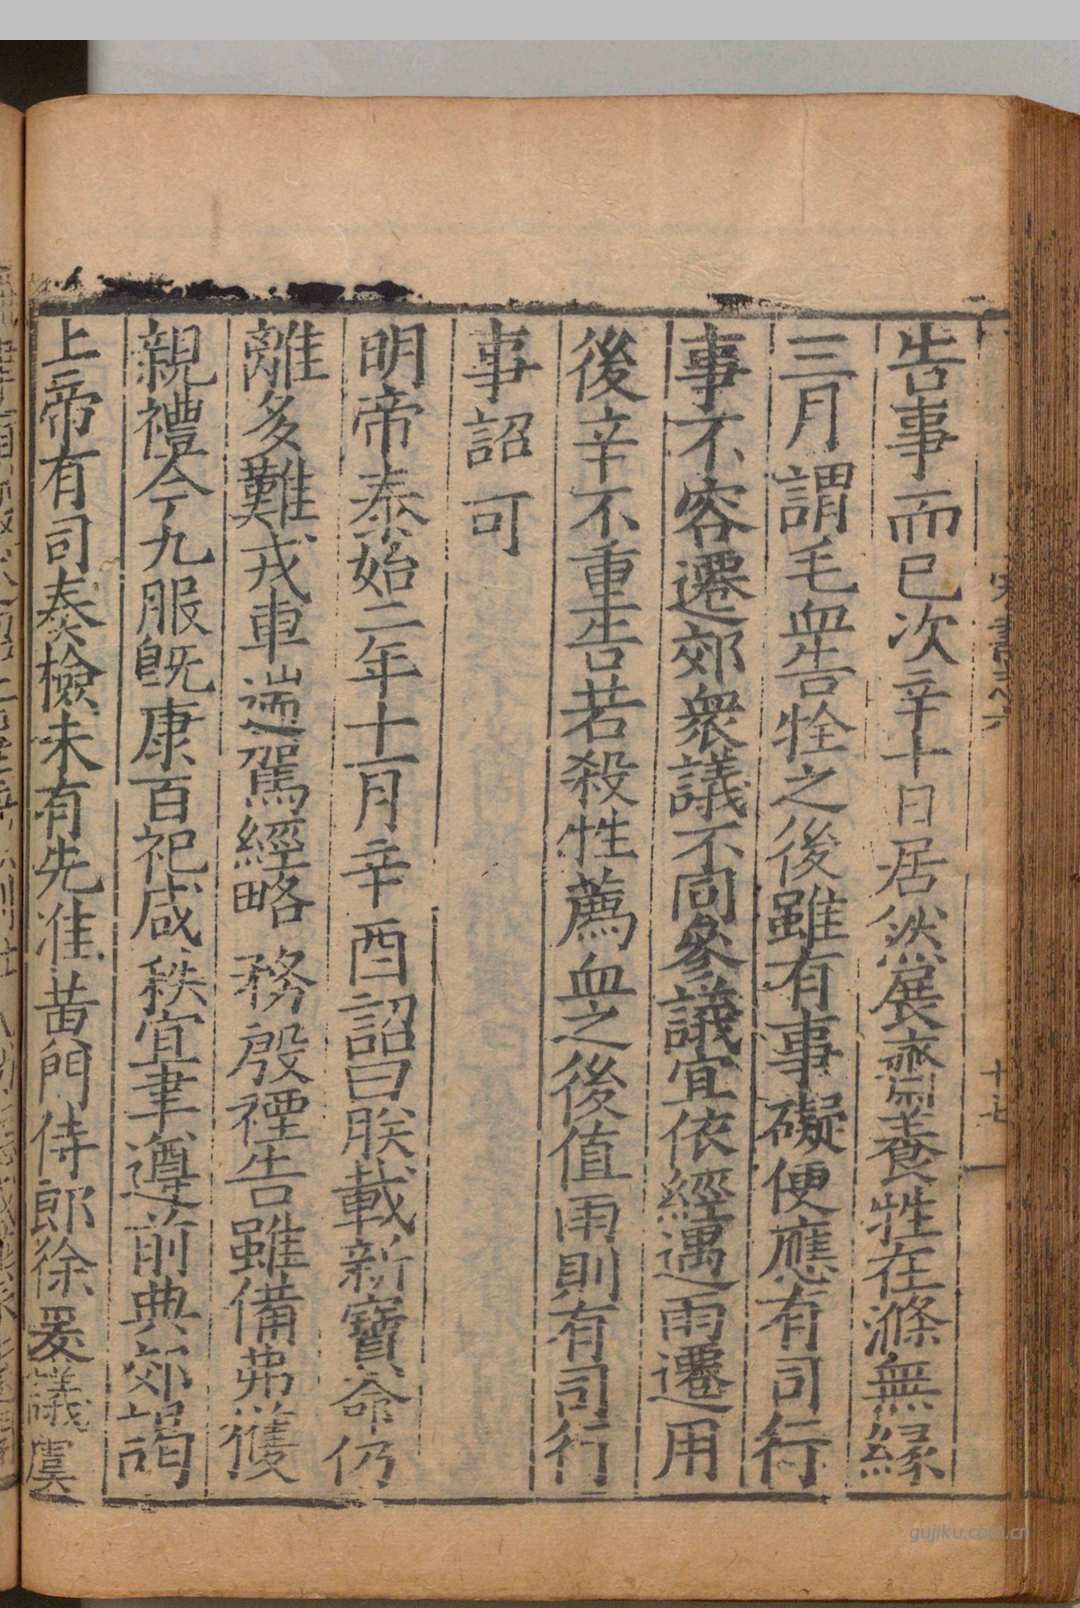 告事而已次辛十日居然展齋養牲在滌無緣
三月謂毛血告牷之後雖有事礙便應有司行
事不容遷郊衆議不同參議宜依經遇雨遷用
後辛不重告若殺牲薦血之後值雨則有司行
事詔可
明帝泰始二年十一月辛酉詔曰朕載新寶命仍
離多難戎車遄駕經略務殷禋告雖備弗獲
親禮今九服旣康百祀咸秩宜聿遵前典郊謁
上帝有司奏檢未有先准黃門侍郎徐爰議虞
宋書志六
十七
gujiku.com.cn